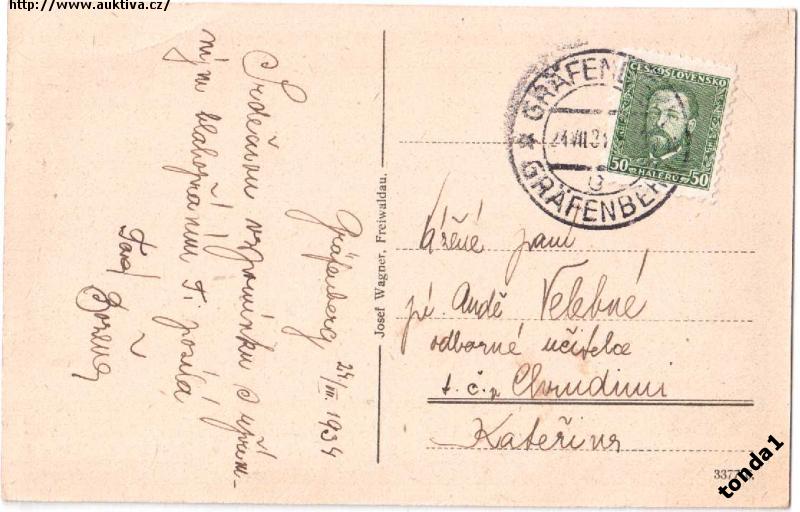 http://www.auktiva.cz/
Gräfenberg 24/VII. 1934
Srdečnou vzpomínku s upřím-
ným blahopřáním Ti posílá
Tvá Božena
Josef Wagner, Freiwaldau.
GRÄFENBERG
24.VII.31
GRÄFENBERG
ČESKOSLOVENSKO
50 HALÉŘŮ 50
Vážené paní
Velebné
odborné učitelce
t. č. v Chrudimi
Kateřina
337
tonda1